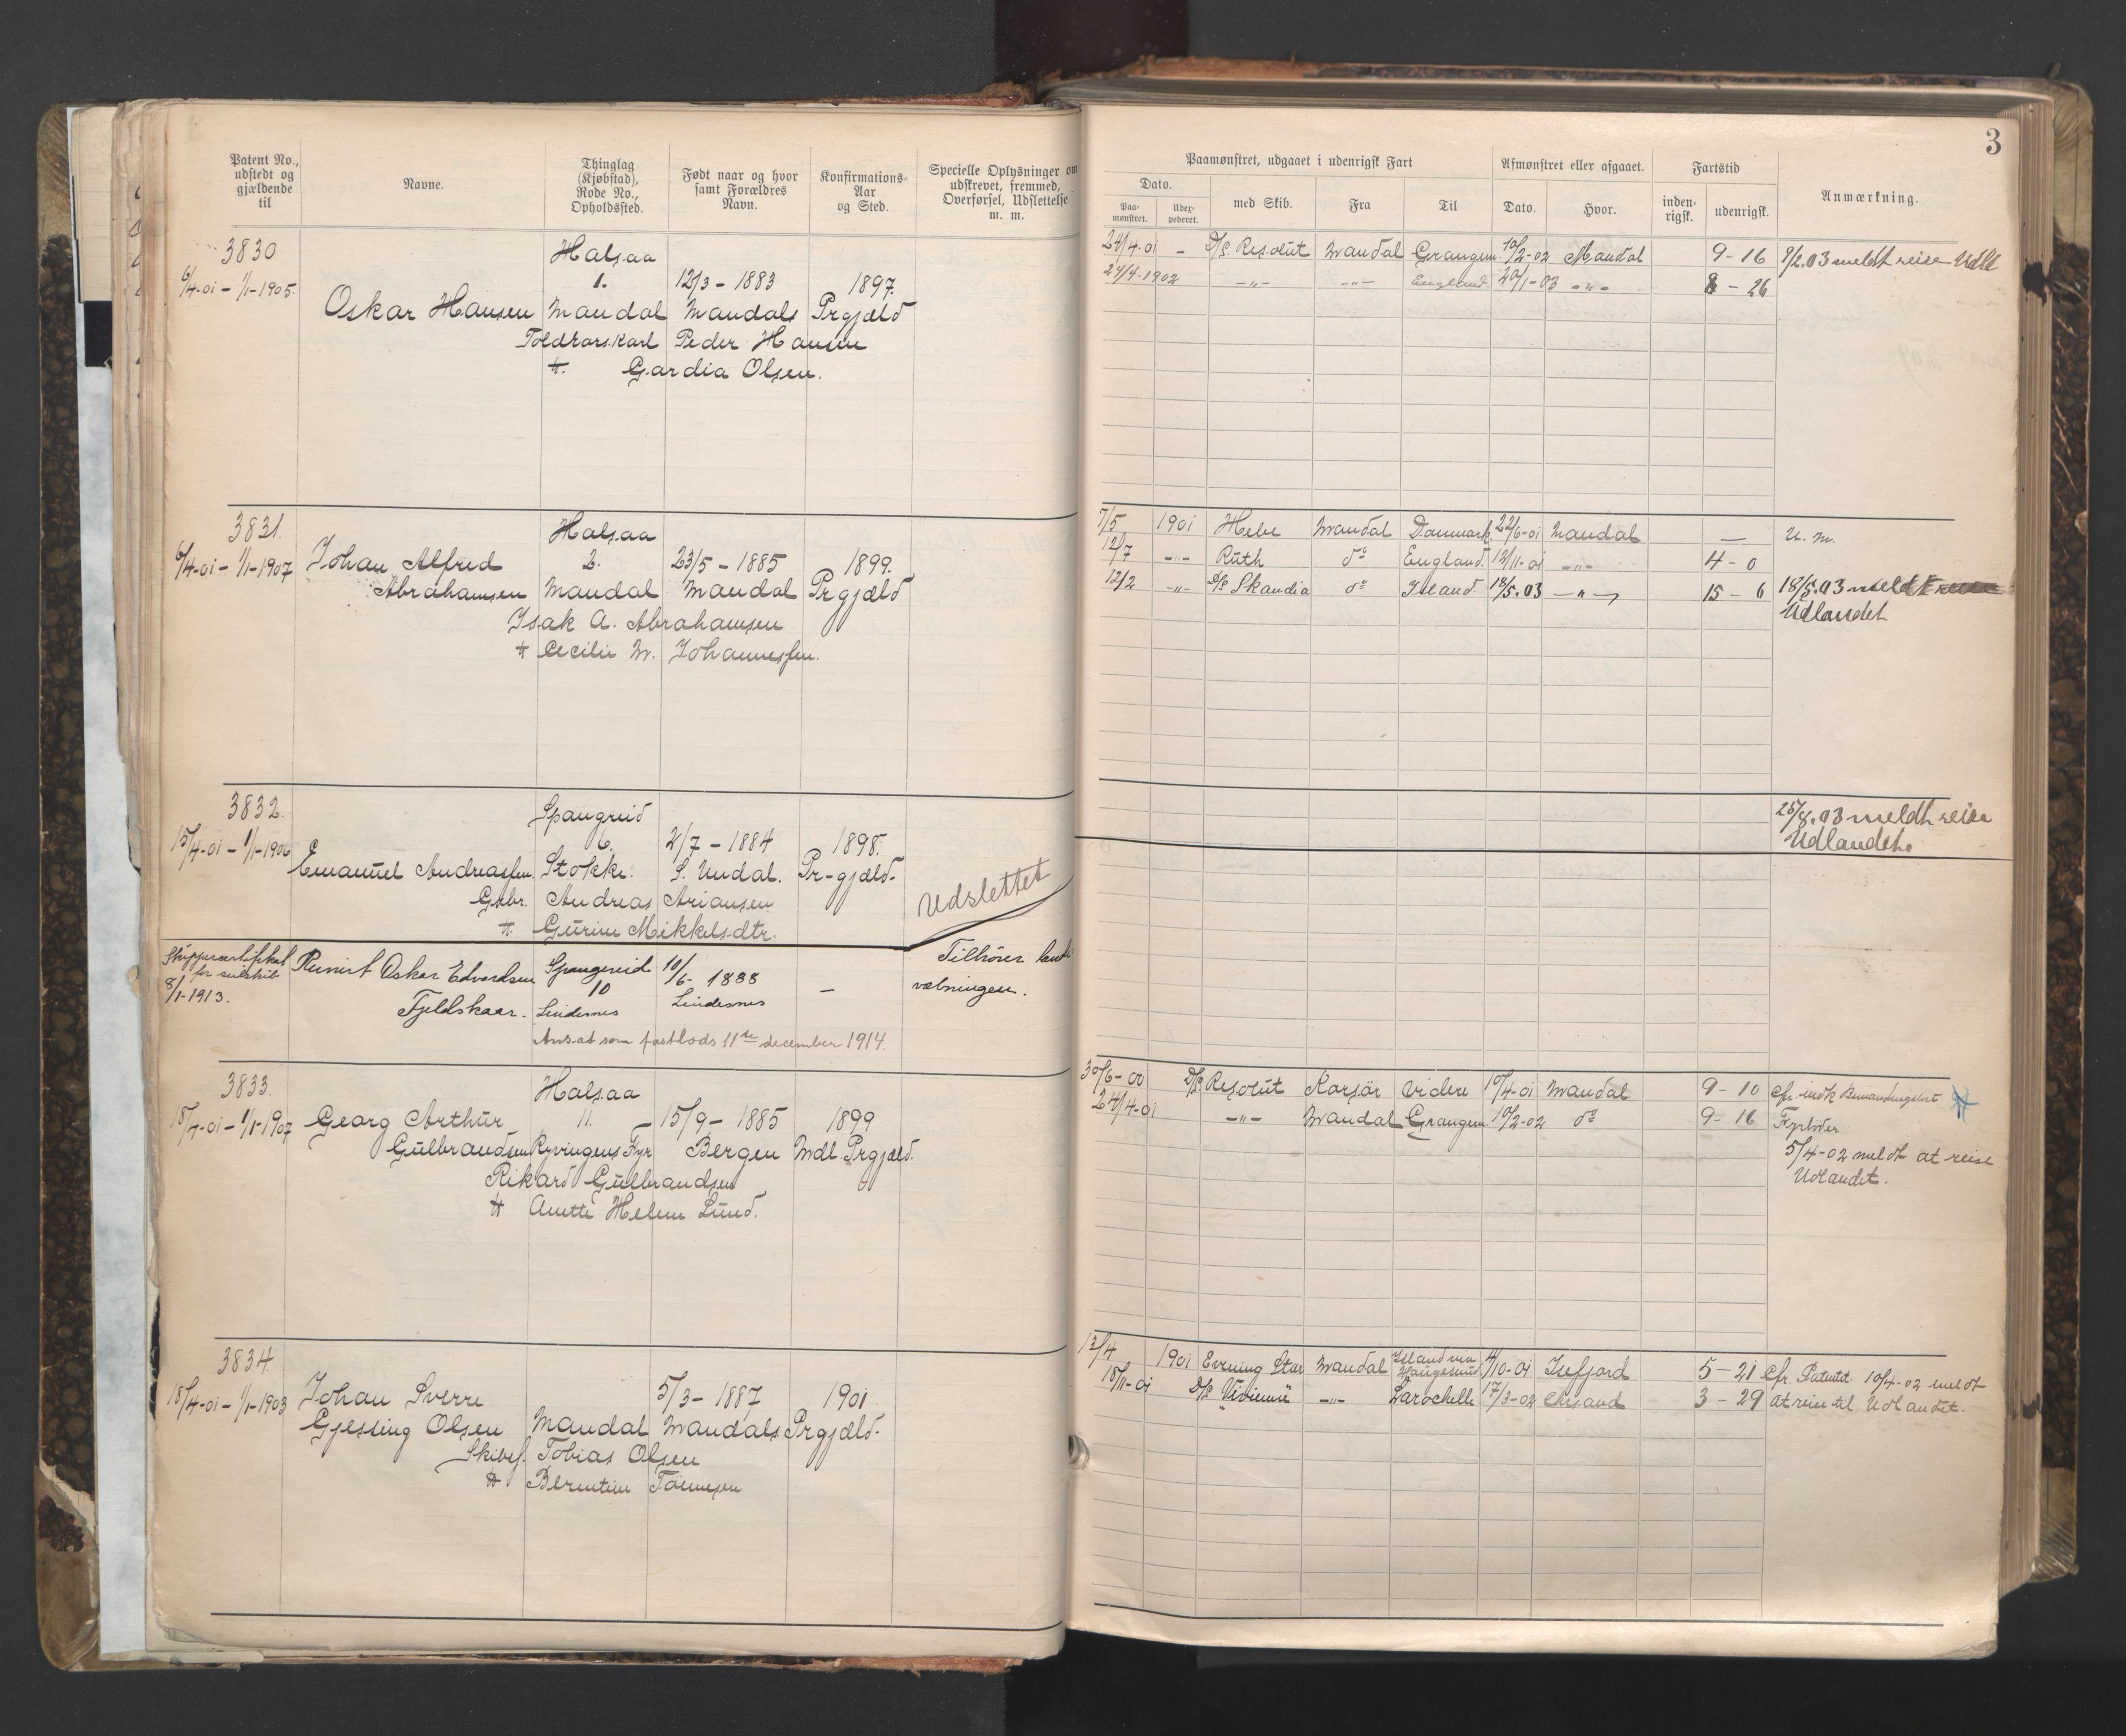 3
Patent No., udstedt og gjældende til
Navne.
Thinglag (Kjøbstad), Rode No., Opholdssted.
Født naar og hvor samt Forældres Navn.
Konfirmations-Aar og Sted.
Specielle Oplysninger om udskrevet, fremmed, Overførsel, Udslettelse m. m.
Paamønstret, udgaaet i udenrigsk Fart
Afmønstret eller afgaaet.
Fartstid
Anmærkning.
Dato.
Paa-mønstret.
Udex-pederet.
med Skib.
Fra
Til
Dato.
Hvor.
inden-rigsk.
udenrigsk.
3830
Halsaa
6/4-01 - 1/1-1905.
1.
12/3 - 1883
1897.
Oskar Hansen Mandal Mandals Prgjæld
Toldrorskarl Peder Hansen
H. Gardia Olsen.
24/4-01 - D/S Resolut Mandal Grangem. 10/2-02 Mandal 9 - 16 9/2.03 meldt reise Udld
24/4-1902 -"- -"- England 20/1-03 -"- 8 - 26
3831.
Halsaa
6/4-01 - 1/1-1907 Johan Alfred 2. 23/5 - 1885 1899.
Abrahamsen Mandal Mandal Prgjæld
Isak A. Abrahamsen
H Cecilie M. Johannessen.
7/5 1901 Hebe Mandal Danmark 22/6-01 Mandal — U. M.
12/7 -"- Ruth do England. 12/11-01 -"- 4 - 0
12/2 -"- D/S Skandia do Island 18/5.03 -"- 15 - 6 18/5.03 meldt reise
Udlandet
3832.
Spangreid
15/4-01 - 1/1-1906 6. 2/7 - 1884 1898.
Emanuel Andreassen. Stokke. S. Undal. Pr-gjæld.
Gbr. Andreas Ariansen
H. Gurine Mikkelsdtr.
Udslettet
25/8.03 meldt reise
Udlandet.
Skippercertifikat
for seilskib
8/1-1913.
Reinert Oskar Edvardsen Spangereid 10/6- 1888
Fjeldskaar. 10
Lindesnes Lindesnes
—
Tilhører land
væbningen.
Ansat som fastlods 11te december 1914.
3833.
Halsaa
18/4-01 - 1/1-1907 Georg Arthur 11. 15/9 - 1885 1899
Gulbrandsen Ryvingens Fyr Bergen Mdl. Prgjæld.
Rikard Gulbrandsen
H Anette Helene Lund.
30/6-00 D/S Resolut Korsör videre 10/4-01 Mandal 9 - 10 Cfr. indk Bemandingslist
24/4-01 -"- Mandal Grangem. 10/2-02 do 9 - 16
5/4-02 meldt at reise
Udlandet.
3834.
18/4-01 - 1/1-1903 Johan Sverre 5/3 - 1887 1901
Gjessing Olsen Mandal Mandals Prgjæld.
Skibsf. Tobias Olsen
H Berentine Tönnesen
12/4 1901 Evening Star Mandal Island via Haugesund 4/10-01 Isefjord 5 - 21 Cfr. Patentet 10/4-02 meldt
18/11-01 D/S -"- Larochelle 17/3-02 Chrsand 3 - 29 at reise til Udlandet.